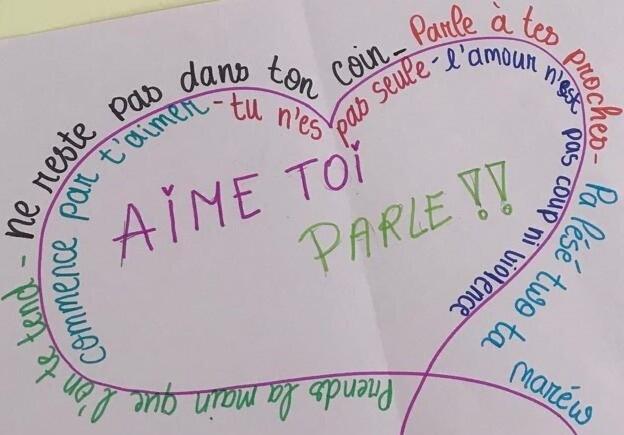 Prends la main que l'on te tend - ne reste pas dans ton coin - Parle à tes proches - Pa lésé two ta maréw
commence par t'aimer - tu n'es pas seule - l'amour n'est pas coup ni violence
AIME TOI
PARLE !!